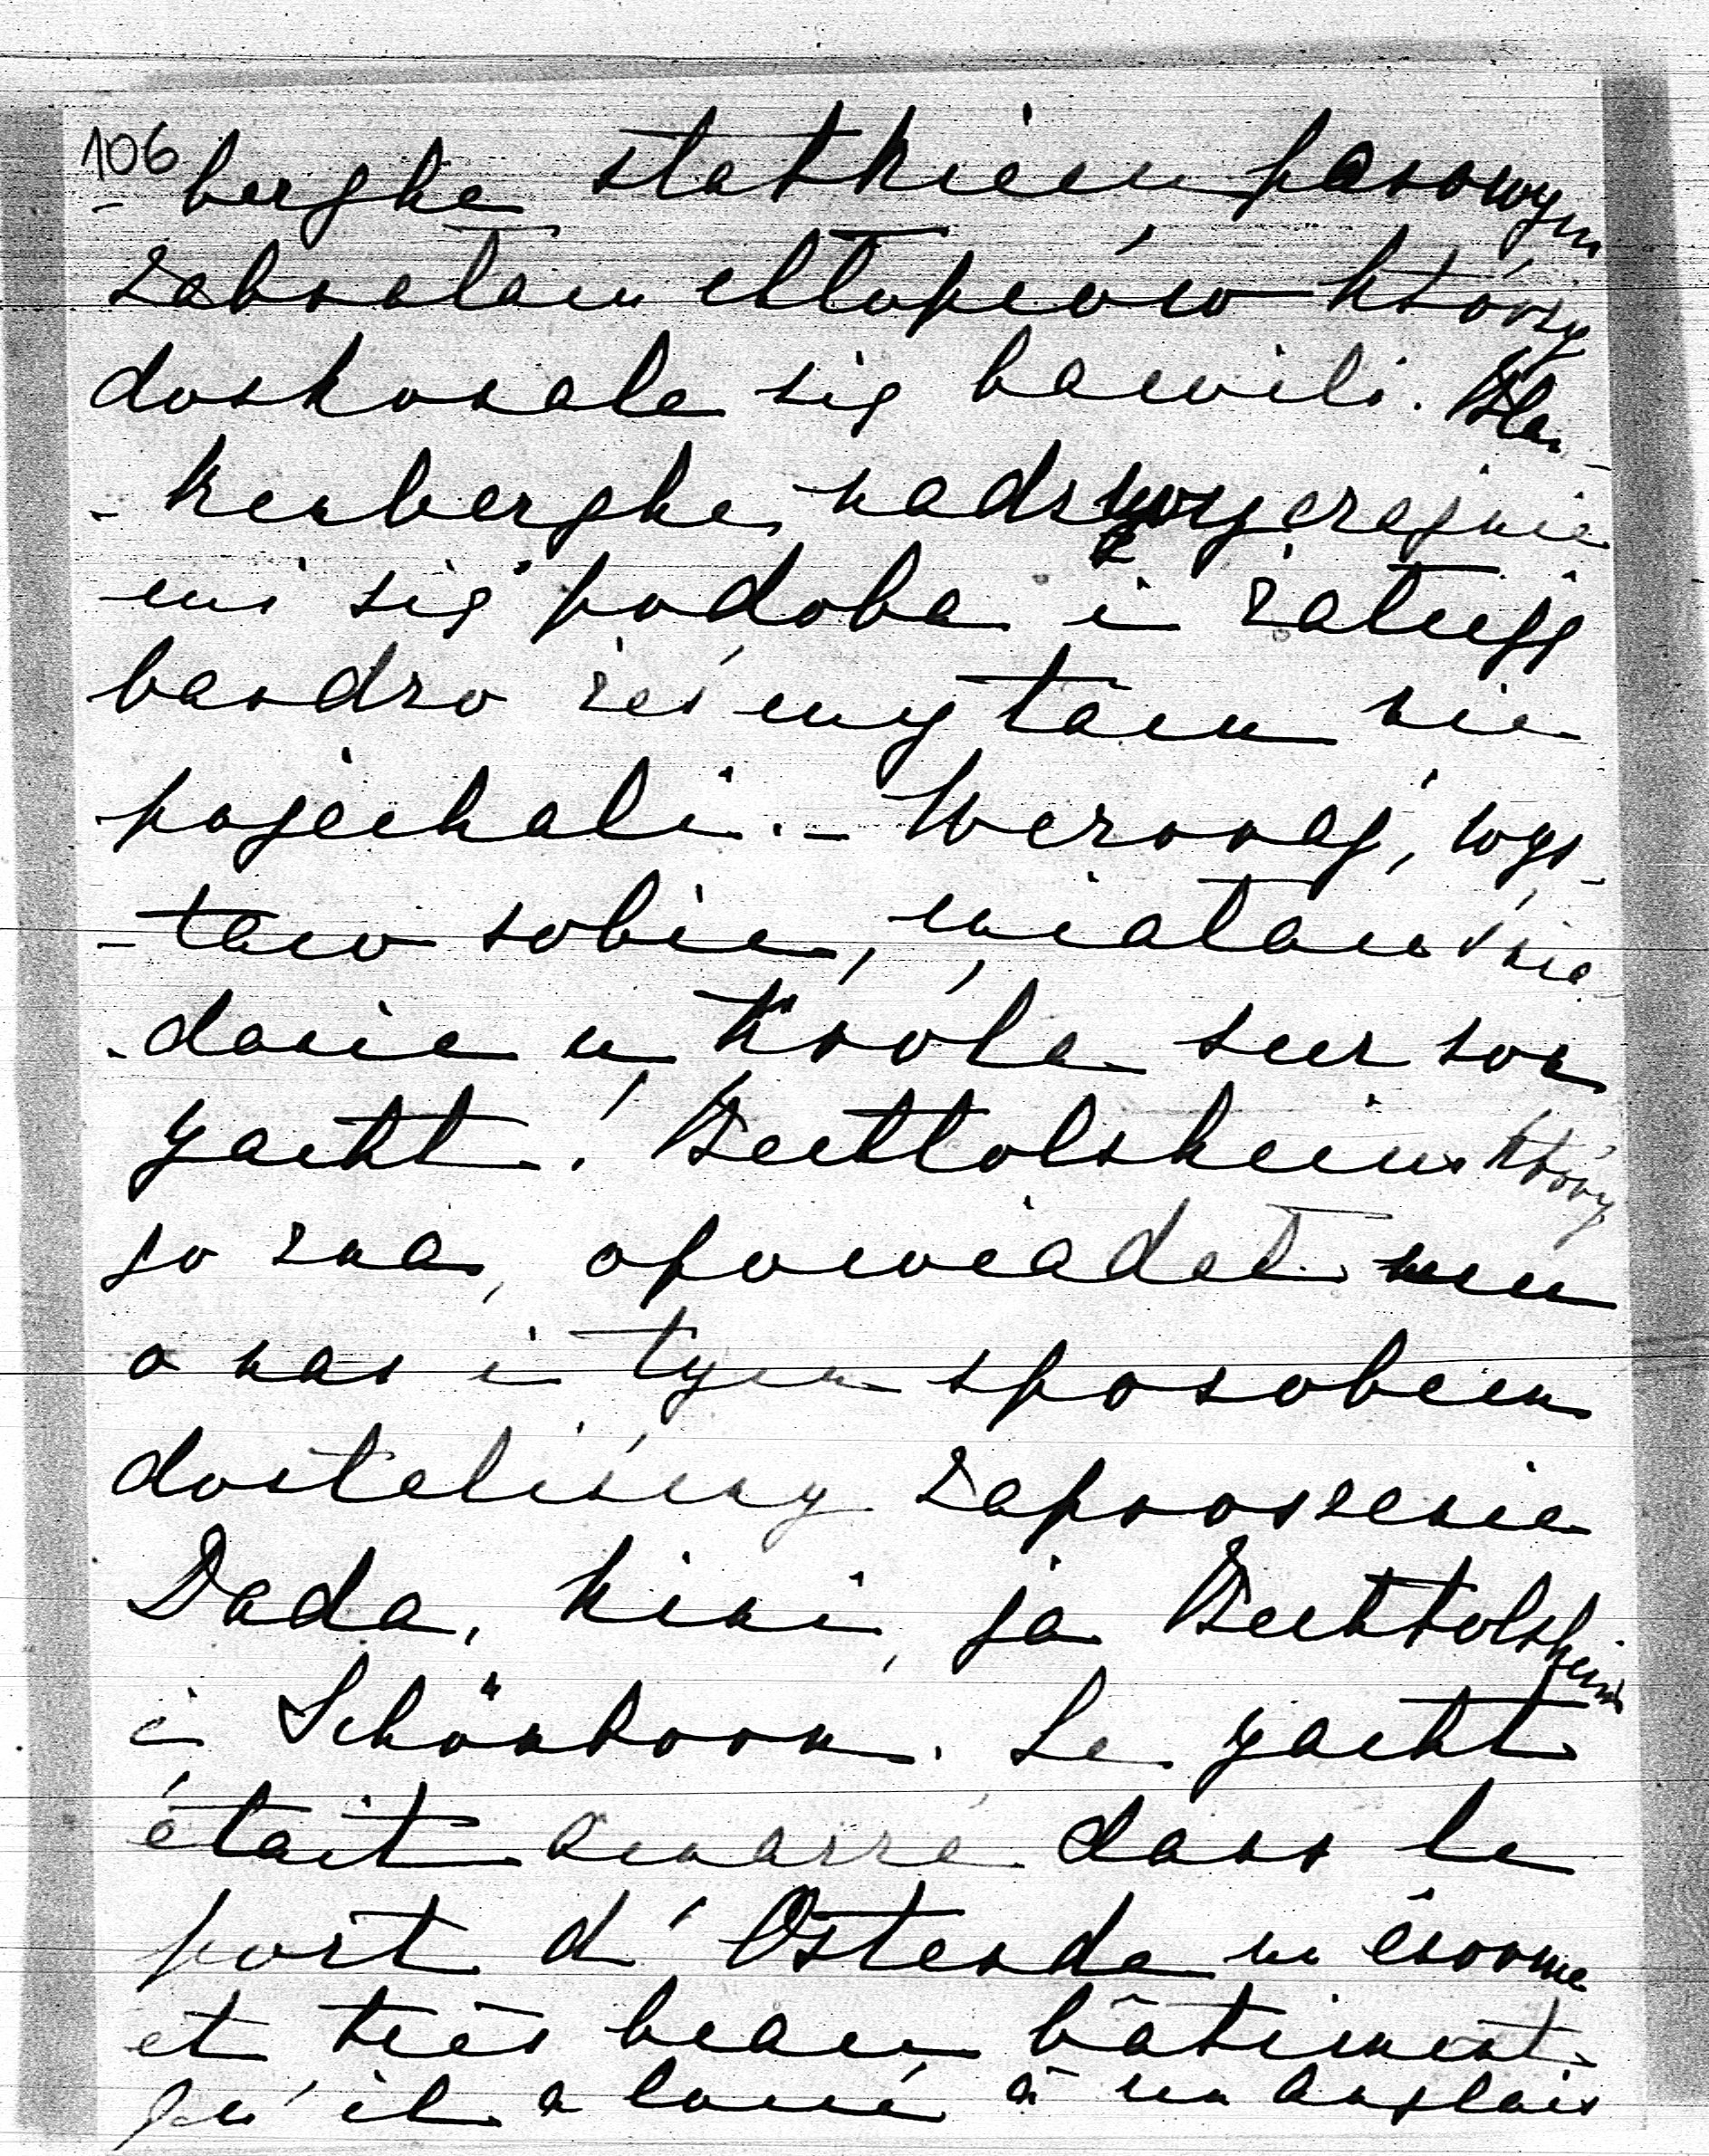 106
- berghe statkiem parowym
zabrałam chłopców którzy
doskonale się bawili. Blan-
- kenberghe nadzwyczajnie
mi się podoba i żałuję
bardzo żeśmy tam nie
pojechali. - Wczoraj, wys-
- taw sobie, miałam śnia-
- danie u Króla sur son
yacht! Bechtolsheim który
go zna, opowiadał mu
o nas i tym sposobem
dostaliśmy zaproszenie
Dada, Kiki, ja Bechtolsheim
i Schönborn. Le yacht
était amarré dans le
port d'Ostende un énorme
et très beau bâtiment
qu'il a loué à un Anglais